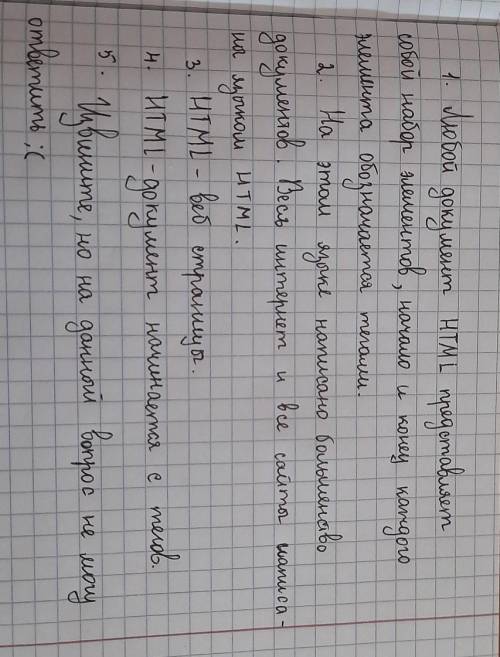 1. Любой документ HTML представляет
собой набор элементов, начало и конец каждого
элемента обозначается тегами.
2. На этом языке написано большенство
документов. Весь интернет и все сайты написа-
ны языком HTML.
3. HTML - веб страницы.
4. HTML-документ начинается с тегов.
5. Извините, но на данный вопрос не могу
ответить :(